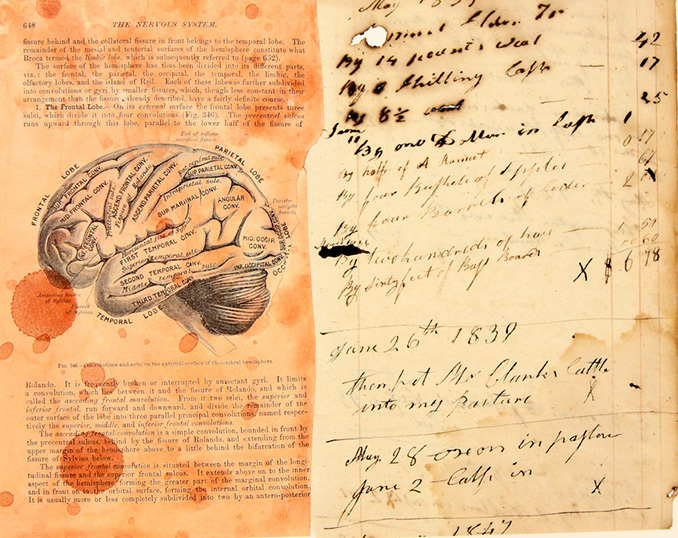 648 THE NERVOUS SYSTEM.
fissure behind and the collateral fissure in front belongs to the temporal lobe. The
remainder of the mesial and tentorial surfaces of the hemisphere constitute what
Broca termed the limbic lobe, which is subsequently referred to (page 652).
The surface of the hemisphere has thus been divided into its different parts,
viz.: the frontal, the parietal, the occipital, the temporal, the limbic, the
olfactory lobes, and the island of Reil. Each of these lobes is further subdivided
into convolutions or gyri by smaller fissures, which, though less constant in their
arrangement than the fissures already described, have a fairly definite course.
1. The Frontal Lobe.—On its external surface the frontal lobe presents three
sulci, which divide it into four convolutions (Fig. 346). The precentral sulcus
runs upward through this lobe, parallel to the lower half of the fissure of
FRONTAL LOBE
PARIETAL LOBE
SUP. FRONTAL CONV.
MID. FRONTAL CONV.
INF. FRONTAL CONV.
ASCEND. FRONTAL CONV.
ASCEND. PARIETAL CONV.
SUP. PARIETAL CONV.
Intraparietal sulc.
SUP. MARGINAL CONV.
ANGULAR CONV.
FIRST TEMPORAL CONV.
Superior temporal sulc.
SECOND TEMPORAL CONV.
Middle temporal sulc.
THIRD TEMPORAL CONV.
MID. OCCIP. CONV.
INF. OCCIPITAL CONV.
TEMPORAL LOBE
FIG. 346.—Convolutions and sulci on the external surface of the cerebral hemisphere.
Rolando. It is frequently broken or interrupted by annectant gyri. It limits
a convolution, which lies between it and the fissure of Rolando, and which is
called the ascending frontal convolution. From it two sulci, the superior and
inferior frontal, run forward and downward, and divide the remainder of the
outer surface of the lobe into three parallel principal convolutions, named respec-
tively the superior, middle, and inferior frontal convolutions.
The ascending frontal convolution is a simple convolution, bounded in front by
the precentral sulcus, behind by the fissure of Rolando, and extending from the
upper margin of the hemisphere above to a little behind the bifurcation of the
fissure of Sylvius below.
The superior frontal convolution is situated between the margin of the long-
tudinal fissure and the superior frontal sulcus. It extends above on to the inner
aspect of the hemisphere, forming the greater part of the marginal convolution,
and in front on to the orbital surface, forming the internal orbital convolution.
It is usually more or less completely subdivided into two by an antero-posterior
May 1839
By 14 pounds veal 42
By shilling Cash 17
By 8½ 25
By one Dollar in Cash 1
By half of A 0 17
By four Bushels of Apples
By four Barrels of Cider 2
By two hundreds of
By Sixty feet of Boards
X $ 6 78
June 26th 1839
then put Mr Cattle
into my pasture X
May 28 oxen in pasture
June 2 Calf in X
1847